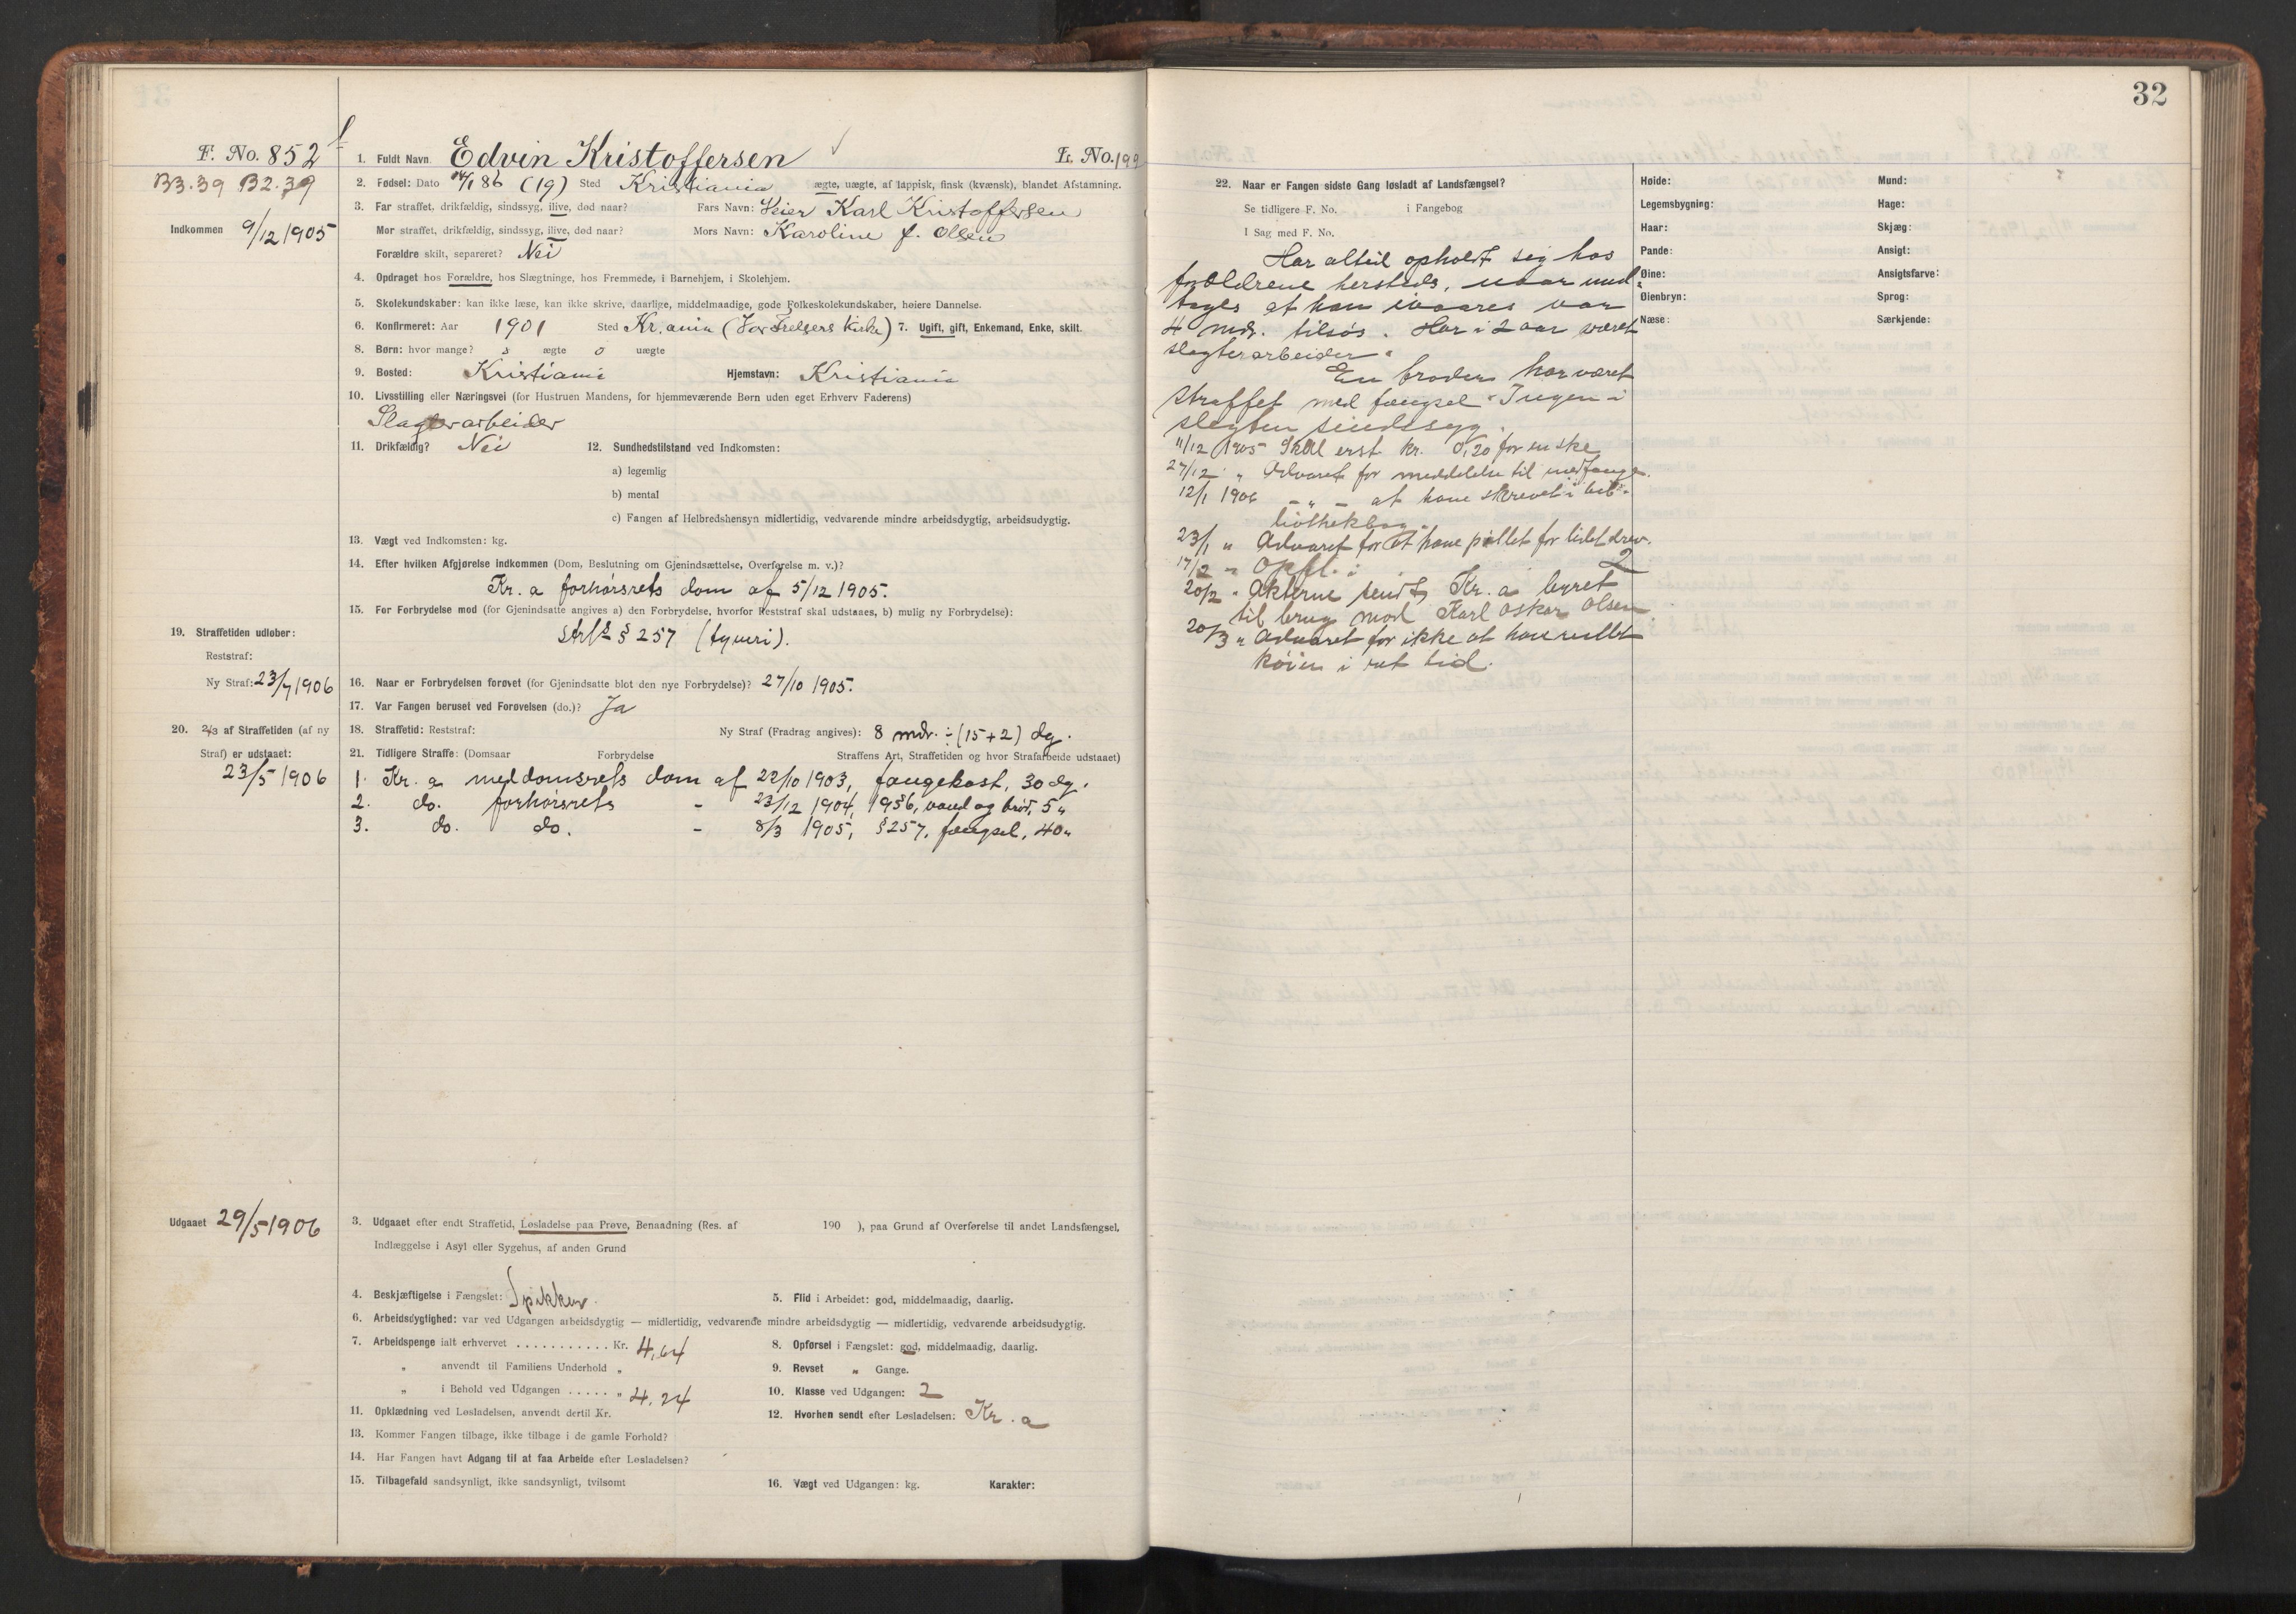 F. No. 852
B3.39 B2.39
Indkommen 9/12 1905
1. Fuldt Navn. Edvin Kristoffersen L. No. 199
2. Fødsel: Dato 14/1 86 (19) Sted Kristiania ægte, uægte, af lappisk, finsk (kvænsk), blandet Afstamning.
3. Far straffet, drikfældig, sindssyg, ilive, død naar? Fars Navn: Karl Kristoffersen
Mor straffet, drikfældig, sindssyg, ilive, død naar? Mors Navn: Karoline f. Olsen
Forældre skilt, separeret? Nei
4. Opdraget hos Forældre, hos Slægtninge, hos Fremmede, i Barnehjem, i Skolehjem.
5. Skolekundskaber: kan ikke læse, kan ikke skrive, daarlige, middelmaadige, gode Folkeskolekundskaber, høiere Dannelse.
6. Konfirmeret: Aar 1901 Sted Kr.ania (Vor Frelsers Kirke) 7. Ugift, gift, Enkemand, Enke, skilt.
8. Børn: hvor mange? ægte o uægte
9. Bosted: Kristiania Hjemstavn: Kristiania
10. Livsstilling eller Næringsvei (for Hustruen Mandens, for hjemmeværende Børn uden eget Erhverv Faderens)
Slagterarbeider
11. Drikfældig? Nei 12. Sundhedstilstand ved Indkomsten:
a) legemlig
b) mental
c) Fangen af Helbredshensyn midlertidig, vedvarende mindre arbeidsdygtig, arbeidsudygtig.
13. Vægt ved Indkomsten: kg.
14. Efter hvilken Afgjørelse indkommen (Dom, Beslutning om Gjenindsættelse, Overførelse m. v.)?
Kr. a forhørsrets dom af 5/12 1905.
15. For Forbrydelse mod (for Gjenindsatte angives a) den Forbrydelse, hvorfor Reststraf skal udstaaes, b) mulig ny Forbrydelse):
Strfl § 257 (tyveri).
19. Straffetiden udløber:
Reststraf:
Ny Straf: 23/7 1906
16. Naar er Forbrydelsen forøvet (for Gjenindsatte blot den nye Forbrydelse)? 27/10 1905.
17. Var Fangen beruset ved Forøvelsen (do.)? Ja
20. 2/3 af Straffetiden (af ny
Straf) er udstaaet:
23/5 1906
18. Straffetid: Reststraf: Ny Straf (Fradrag angives): 8 mdr. ÷ (15+2) dg.
21. Tidligere Straffe: (Domsaar Forbrydelse Straffens Art, Straffetiden og hvor Strafarbeide udstaaet)
1. Kr. a meddomsrets dom af 22/10 1903, fangekost, 30 dg.
2. do. forhørsrets - 23/12 1904, vand og brød, 5 "
3. do. do. - 8/3 1905, § 257, fængsel, 40 "
Udgaaet 29/5 1906
3. Udgaaet efter endt Straffetid, Løsladelse paa Prøve, Benaadning (Res. af 190 ), paa Grund af Overførelse til andet Landsfængsel,
Indlæggelse i Asyl eller Sygehus, af anden Grund
4. Beskjæftigelse i Fængslet: Spikker 5. Flid i Arbeidet: god, middelmaadig, daarlig.
6. Arbeidsdygtighed: var ved Udgangen arbeidsdygtig — midlertidig, vedvarende mindre arbeidsdygtig — midlertidig, vedvarende arbeidsudygtig.
7. Arbeidspenge ialt erhvervet . . . . . . . . . . . Kr. 4,64 8. Opførsel i Fængslet: god, middelmaadig, daarlig.
" anvendt til Familiens Underhold " 9. Revset " Gange.
" i Behold ved Udgangen . . . . . " 4.24 10. Klasse ved Udgangen: 2
11. Opklædning ved Løsladelsen, anvendt dertil Kr. 12. Hvorhen sendt efter Løsladelsen: Kr. a
13. Kommer Fangen tilbage, ikke tilbage i de gamle Forhold?
14. Har Fangen havt Adgang til at faa Arbeide efter Løsladelsen?
15. Tilbagefald sandsynligt, ikke sandsynligt, tvilsomt 16. Vægt ved Udgangen: kg. Karakter:
32
22. Naar er Fangen sidste Gang løsladt af Landsfængsel?
Se tidligere F. No. i Fangebog
I Sag med F. No.
Har altid opholdt sig hos
forældrene hersteds, naar und-
tages at han ivaares var
4 mdr. tilsøs. Har i 2 aar været
slagterarbeider.
En broder har været
straffet med fængsel. Ingen i
slegten sindssyg.
11/12 1905 Skal erst. kr. 0,20 for en ske
27/12 " Advaret for meddelelse til medfange.
12/1 1906 — " — at have skrevet i bib-
liothekbog.
23/1 " Advaret for at have pillet for lidet drev.
17/2 " Opfl. i 2
20/2 " Akterne sendt Kr. a byret
til brug mod Karl Oskar Olsen
20/3 " Advaret for ikke at have rullet
køien i ret tid.
Høide: Mund:
Legemsbygning: Hage:
Haar: Skjæg:
Pande: Ansigt:
Øine: Ansigtsfarve:
Øienbryn: Sprog:
Næse: Særkjende: